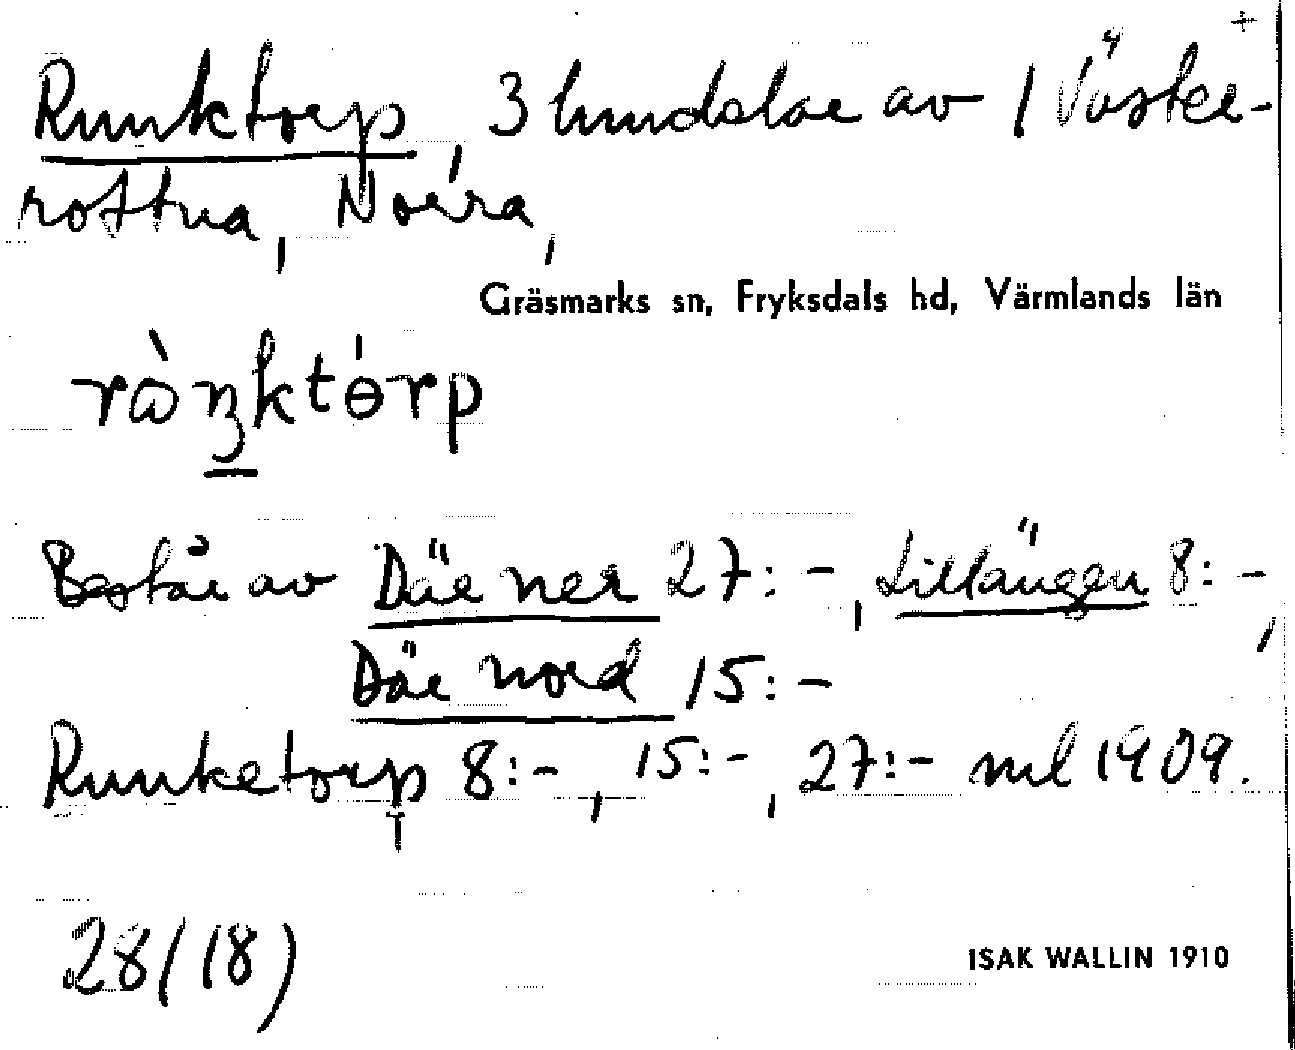 Runktorp, 3 hmdslar av 1 Väster-
rottna, Norra,
Gräsmarks sn, Fryksdals hd, Värmlands län
rὼŋktɵ́rp
Består av Där ner 27:-, Lillängen 8:-,
Där nord 15:-
Runketorp 8:-, 15:-, 27:- ml 1909.
28/(18)
ISAK WALLIN 1910